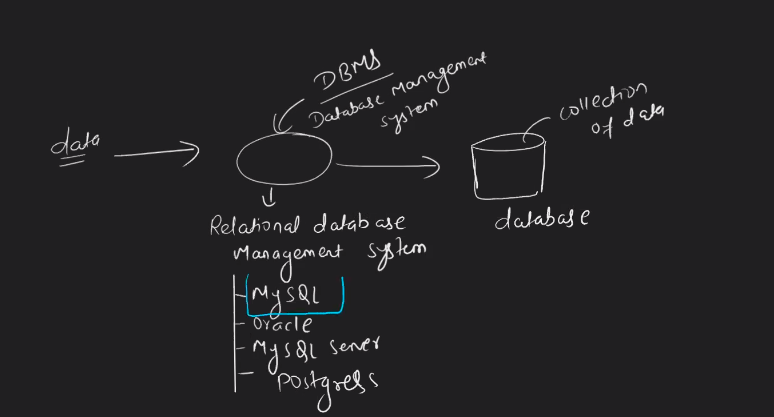 DBMS
Database Management
system
collection
of data
data
database
Relational database
Management system
MySQL
oracle
MySQL server
Postgress